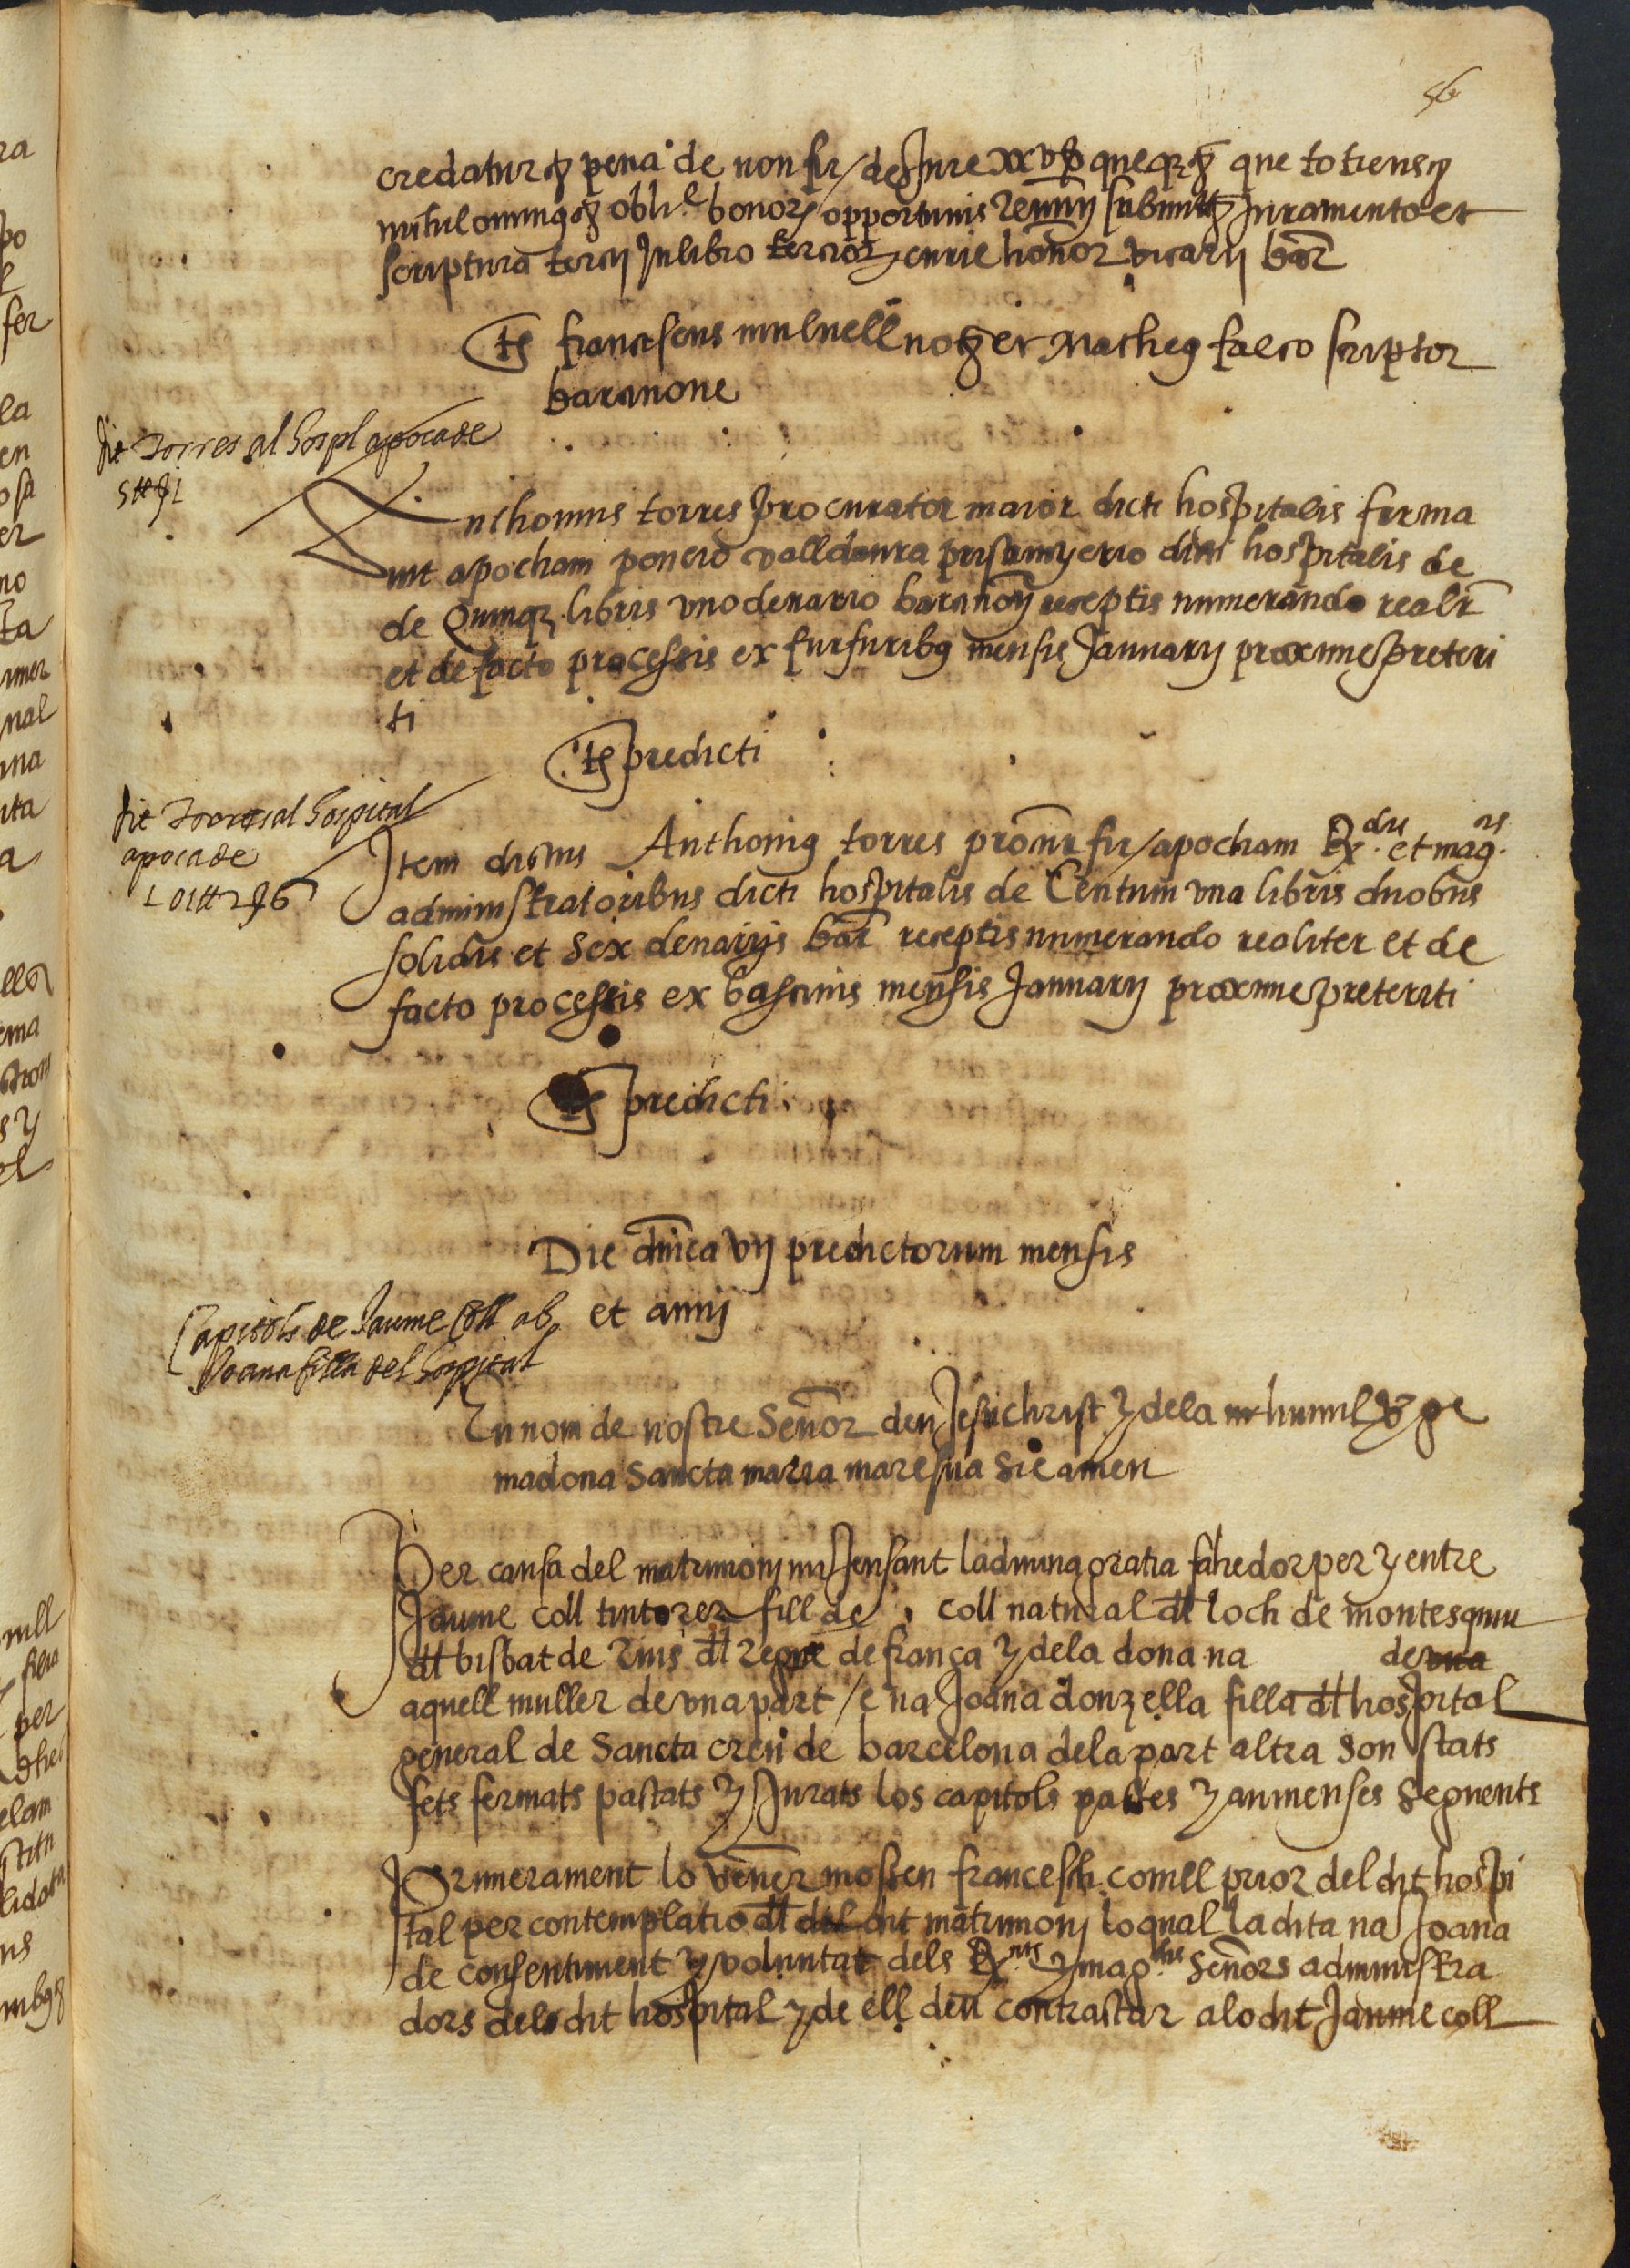 56
credatur et pena de non fir/ de Jure xxv β queq et que totiens et
nihilominus et obli.e bonor opportunis Renun submitt et Juramento et
scriptura tercij In libro tercior curie honor vicarij bar
ts franciscus mulnell not et Matheus falco scriptor
barcinone
dit torres al hospl apoca de
5 ₶ β 1
Anthonius torres procurator maior dicti hospitalis firma
uit apocham poncio valldaura dicti hospitalis de
de Quinq libris vno denario barcinon receptis numerando realr
et de facto processis ex furfuribus mensis Januarij proxime preteri
ti
ts predicti
dit torres al hospital
apoca de
101 ₶ 2 β 6
Item dictus Anthonius torres procur fir/ apocham Rx.dis et mag.cis
administratoribus dicti hospitalis de Centum vna libris duobus
solidis et Sex denarijs bar receptis numerando realiter et de
facto processis ex bascinis mensis Januarij proxime preteriti
ts predicti
Die dnica vij predictorum mensis
et annj
Capitols de Jaume Coll ab
Joana filla del hospital
En nom de nostre Señor deu Jesuchrist y dela humil verge
madona Sancta maria mare sua Sie amen
Per causa del matrimonj mijensant la diuina gratia fahedor per y entre
Jaume coll tintorer fill de coll natural dl loch de montesquiu
dl bisbat de Rius dl regne de frança y dela dona na de vna
aquell muller de vna part / e na Joana donzella filla dl hospital
general de Sancta creu de barcelona dela part altra son stats
fets fermats pactats y Jurats los capitols pactes y auinenses Seguents
Primerament lo vener mossen francesch comell prior del dit hospi
tal per contemplatio dl del dit matrimonj lo qual la dita na Joana
de consentiment y voluntat dels Rx.nts y mag.chs Señors administra
dors dels dit hospital y de ell deu contractar a lo dit Jaume coll